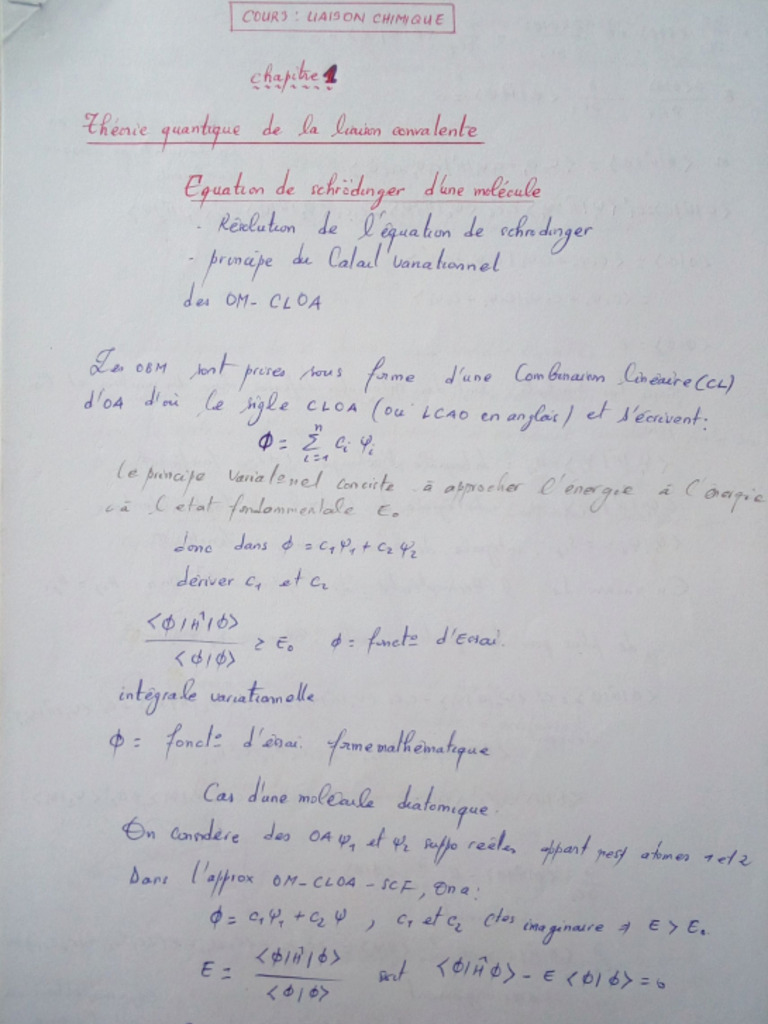 COURS : LIAISON CHIMIQUE
chapitre 1
Théorie quantique de la liaison convalente
Equation de schrödinger d'une molécule
- Résolution de l'équation de schrodinger
- principe du Calcul variationnel
des OM- CLOA
Les OBM sont prises sous forme d'une Combinaison linéaire (CL)
d'OA d'où le sigle CLOA (ou LCAO en anglais) et s'écrivent:
Φ = Σ_{i=1}^{n} c_i φ_i
le principe variatenel conciste à approcher l'énergie à l'énergie
à l'etat fondammentale E₀
donc dans Φ = c₁Ψ₁ + c₂Ψ₂
dériver c₁ et c₂
<Φ|Ĥ|Φ> / <Φ|Φ> ≥ E₀ Φ = functº d'Essai.
intégrale variationnelle
Φ = fonctº d'essai. forme mathématique
Cas d'une molécule diatomique.
On considère des OA Ψ₁ et Ψ₂ suppo réelles appart resp atomes 1 et 2
Dans l'approx OM-CLOA-SCF, On a:
Φ = c₁Ψ₁ + c₂Ψ , c₁ et c₂ Ctes imaginaire ⇒ E > E₀
E = <Φ|Ĥ|Φ> / <Φ|Φ> soit <Φ|ĤΦ> - E <Φ|Φ> = 0